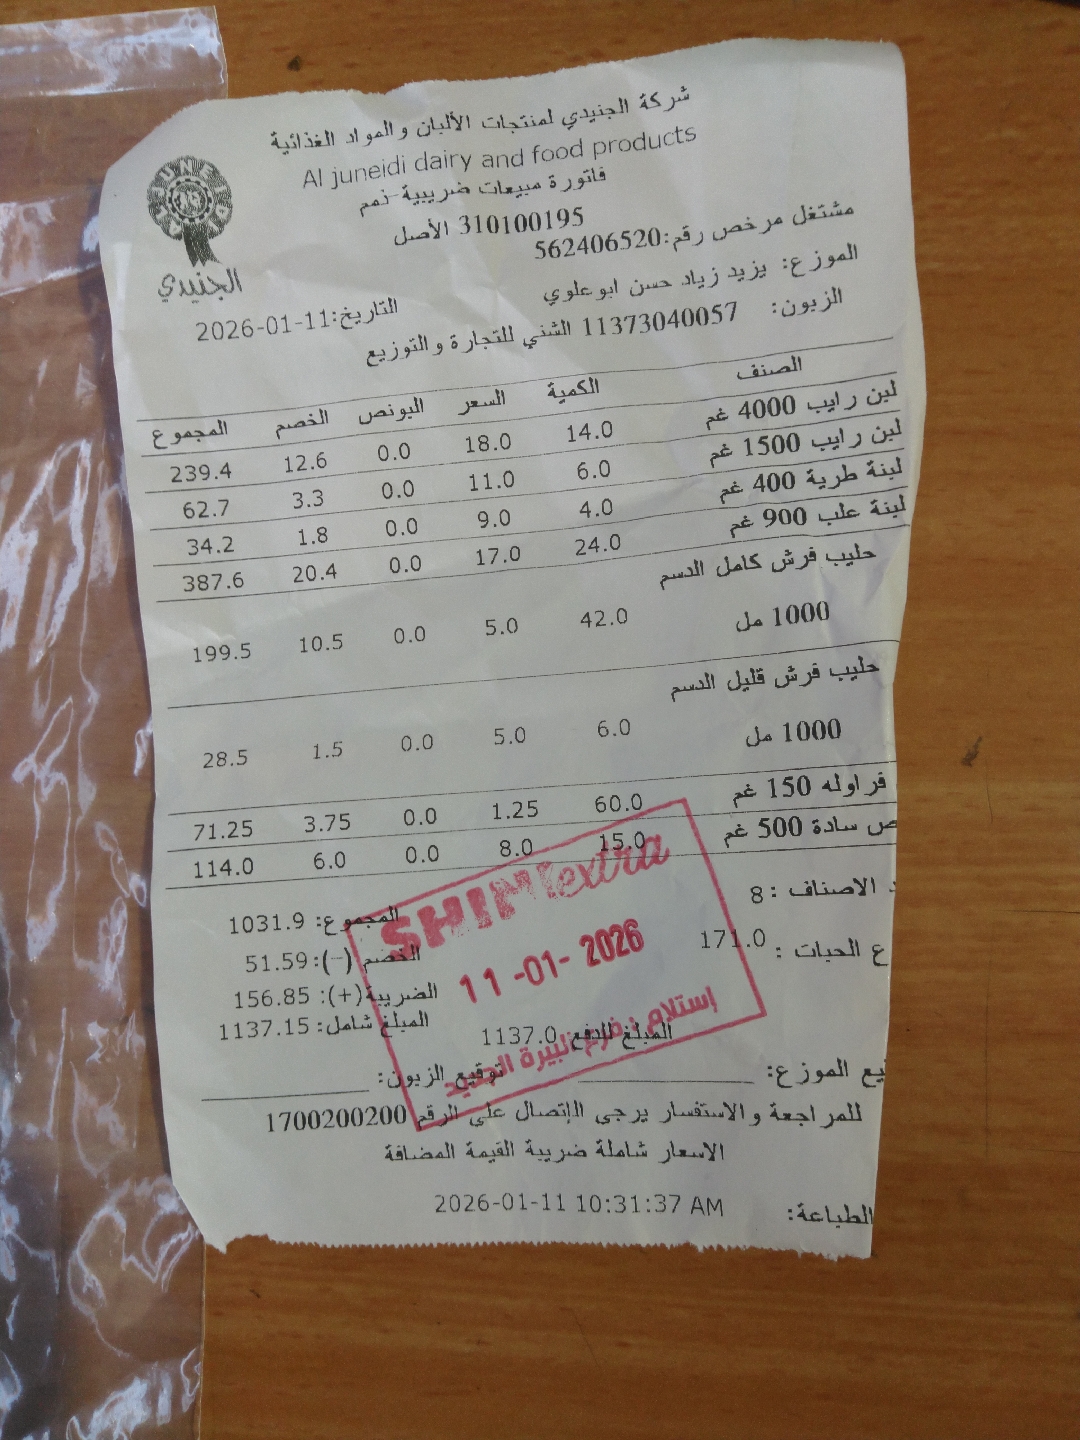 شركة الجنيدي لمنتجات الألبان والمواد الغذائية
Al juneidi dairy and food products
فاتورة مبيعات ضريبية-نمم
310100195 الأصل
مشتغل مرخص رقم:562406520
الجنيدي
الموزع: يزيد زياد حسن ابوعلوي
التاريخ:2026-01-11
الزبون: 11373040057 الشني للتجارة والتوزيع
الصنف الكمية السعر البونص الخصم المجموع
لبن رايب 4000 غم 14.0 18.0 0.0 12.6 239.4
لبن رايب 1500 غم 6.0 11.0 0.0 3.3 62.7
لبنة طرية 400 غم 4.0 9.0 0.0 1.8 34.2
لبنة علب 900 غم 24.0 17.0 0.0 20.4 387.6
حليب فرش كامل الدسم
1000 مل 42.0 5.0 0.0 10.5 199.5
حليب فرش قليل الدسم
1000 مل 6.0 5.0 0.0 1.5 28.5
فراوله 150 غم 60.0 1.25 0.0 3.75 71.25
ص سادة 500 غم 15.0 8.0 0.0 6.0 114.0
الاصناف : 8
المجموع: 1031.9
ع الحبات : 171.0
الخصم (-): 51.59
الضريبة(+): 156.85
المبلغ شامل: 1137.15
المبلغ للدفع 1137.0
SHINI extra
11-01-2026
إستلام : فرع البيرة الجديد
يع الموزع:
توقيع الزبون:
للمراجعة والاستفسار يرجى الإتصال على الرقم 1700200200
الاسعار شاملة ضريبة القيمة المضافة
الطباعة: 2026-01-11 10:31:37 AM